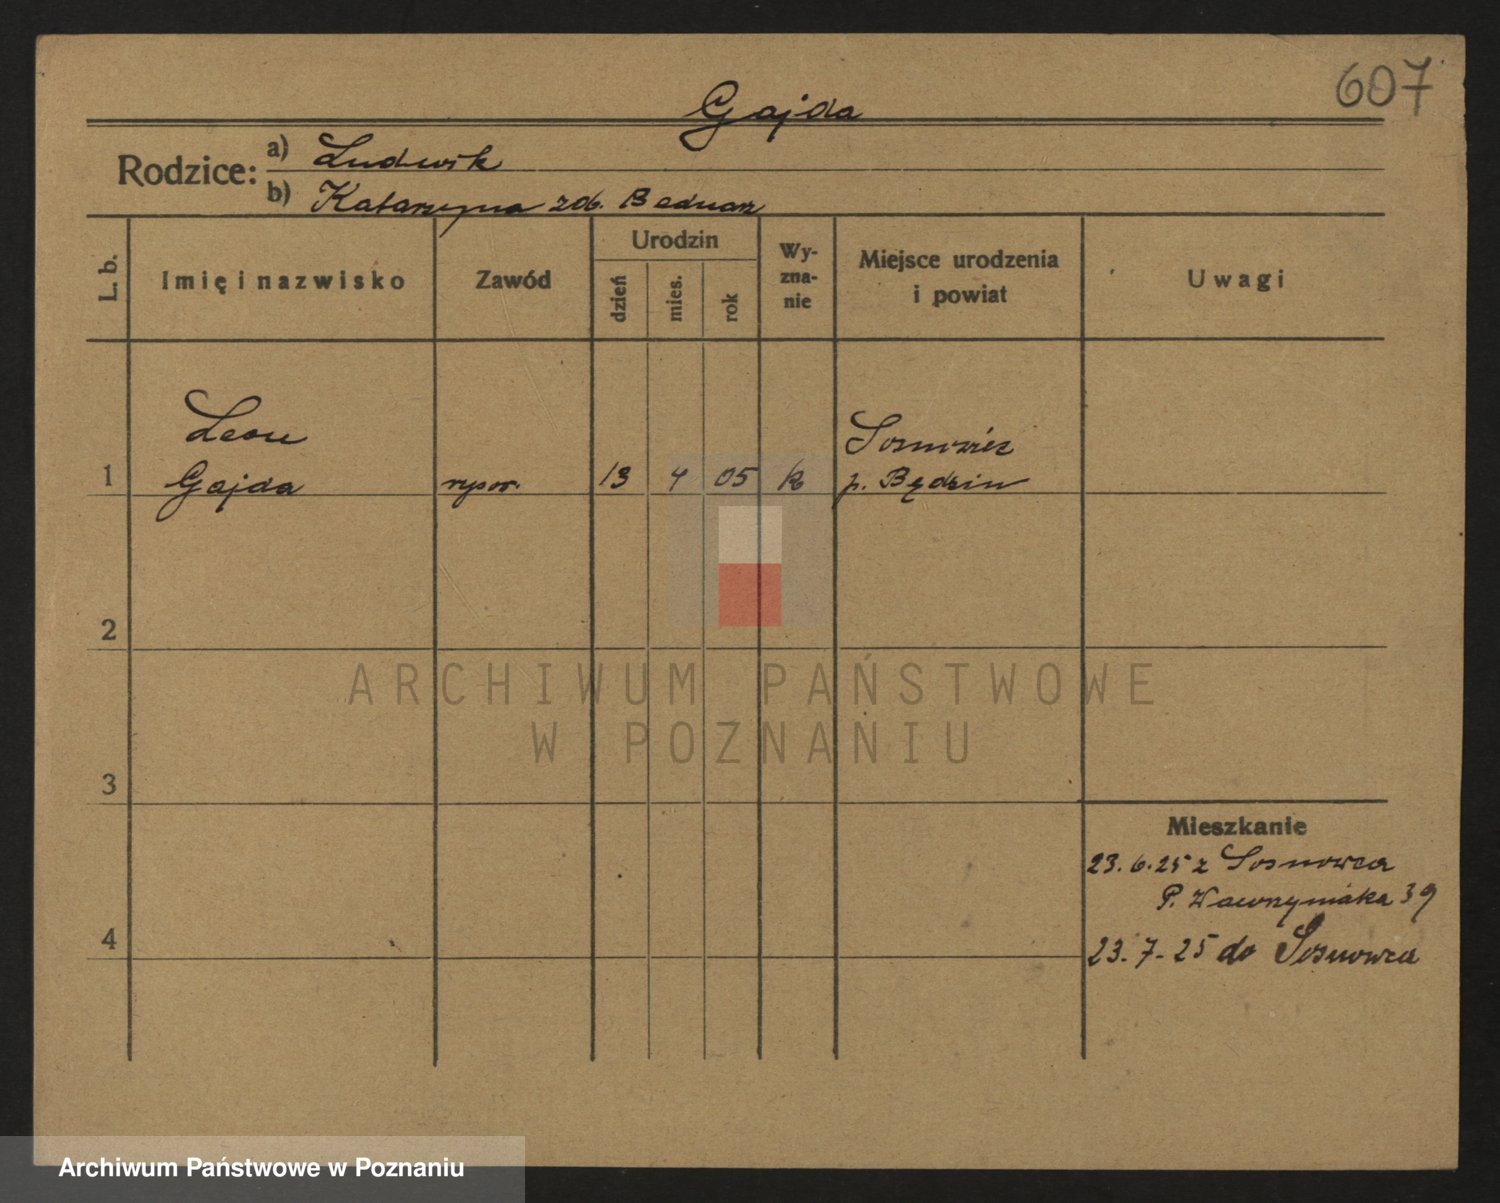 607
Gajda
Rodzice: a) Ludwik
b) Katarzyna zd. Bednarz
L. b.
Imię i nazwisko
Zawód
Urodzin
dzień
mies.
rok
Wy-
zna-
nie
Miejsce urodzenia
i powiat
Uwagi
Leon
Sosnowiec
1 Gajda 13 4 05 k p. Będzin
2
ARCHIWUM PAŃSTWOWE
W POZNANIU
3
Mieszkanie
23.6.25 z Sosnowca
P. Wawrzyniaka 39
4
23.7.25 do Sosnowca
Archiwum Państwowe w Poznaniu